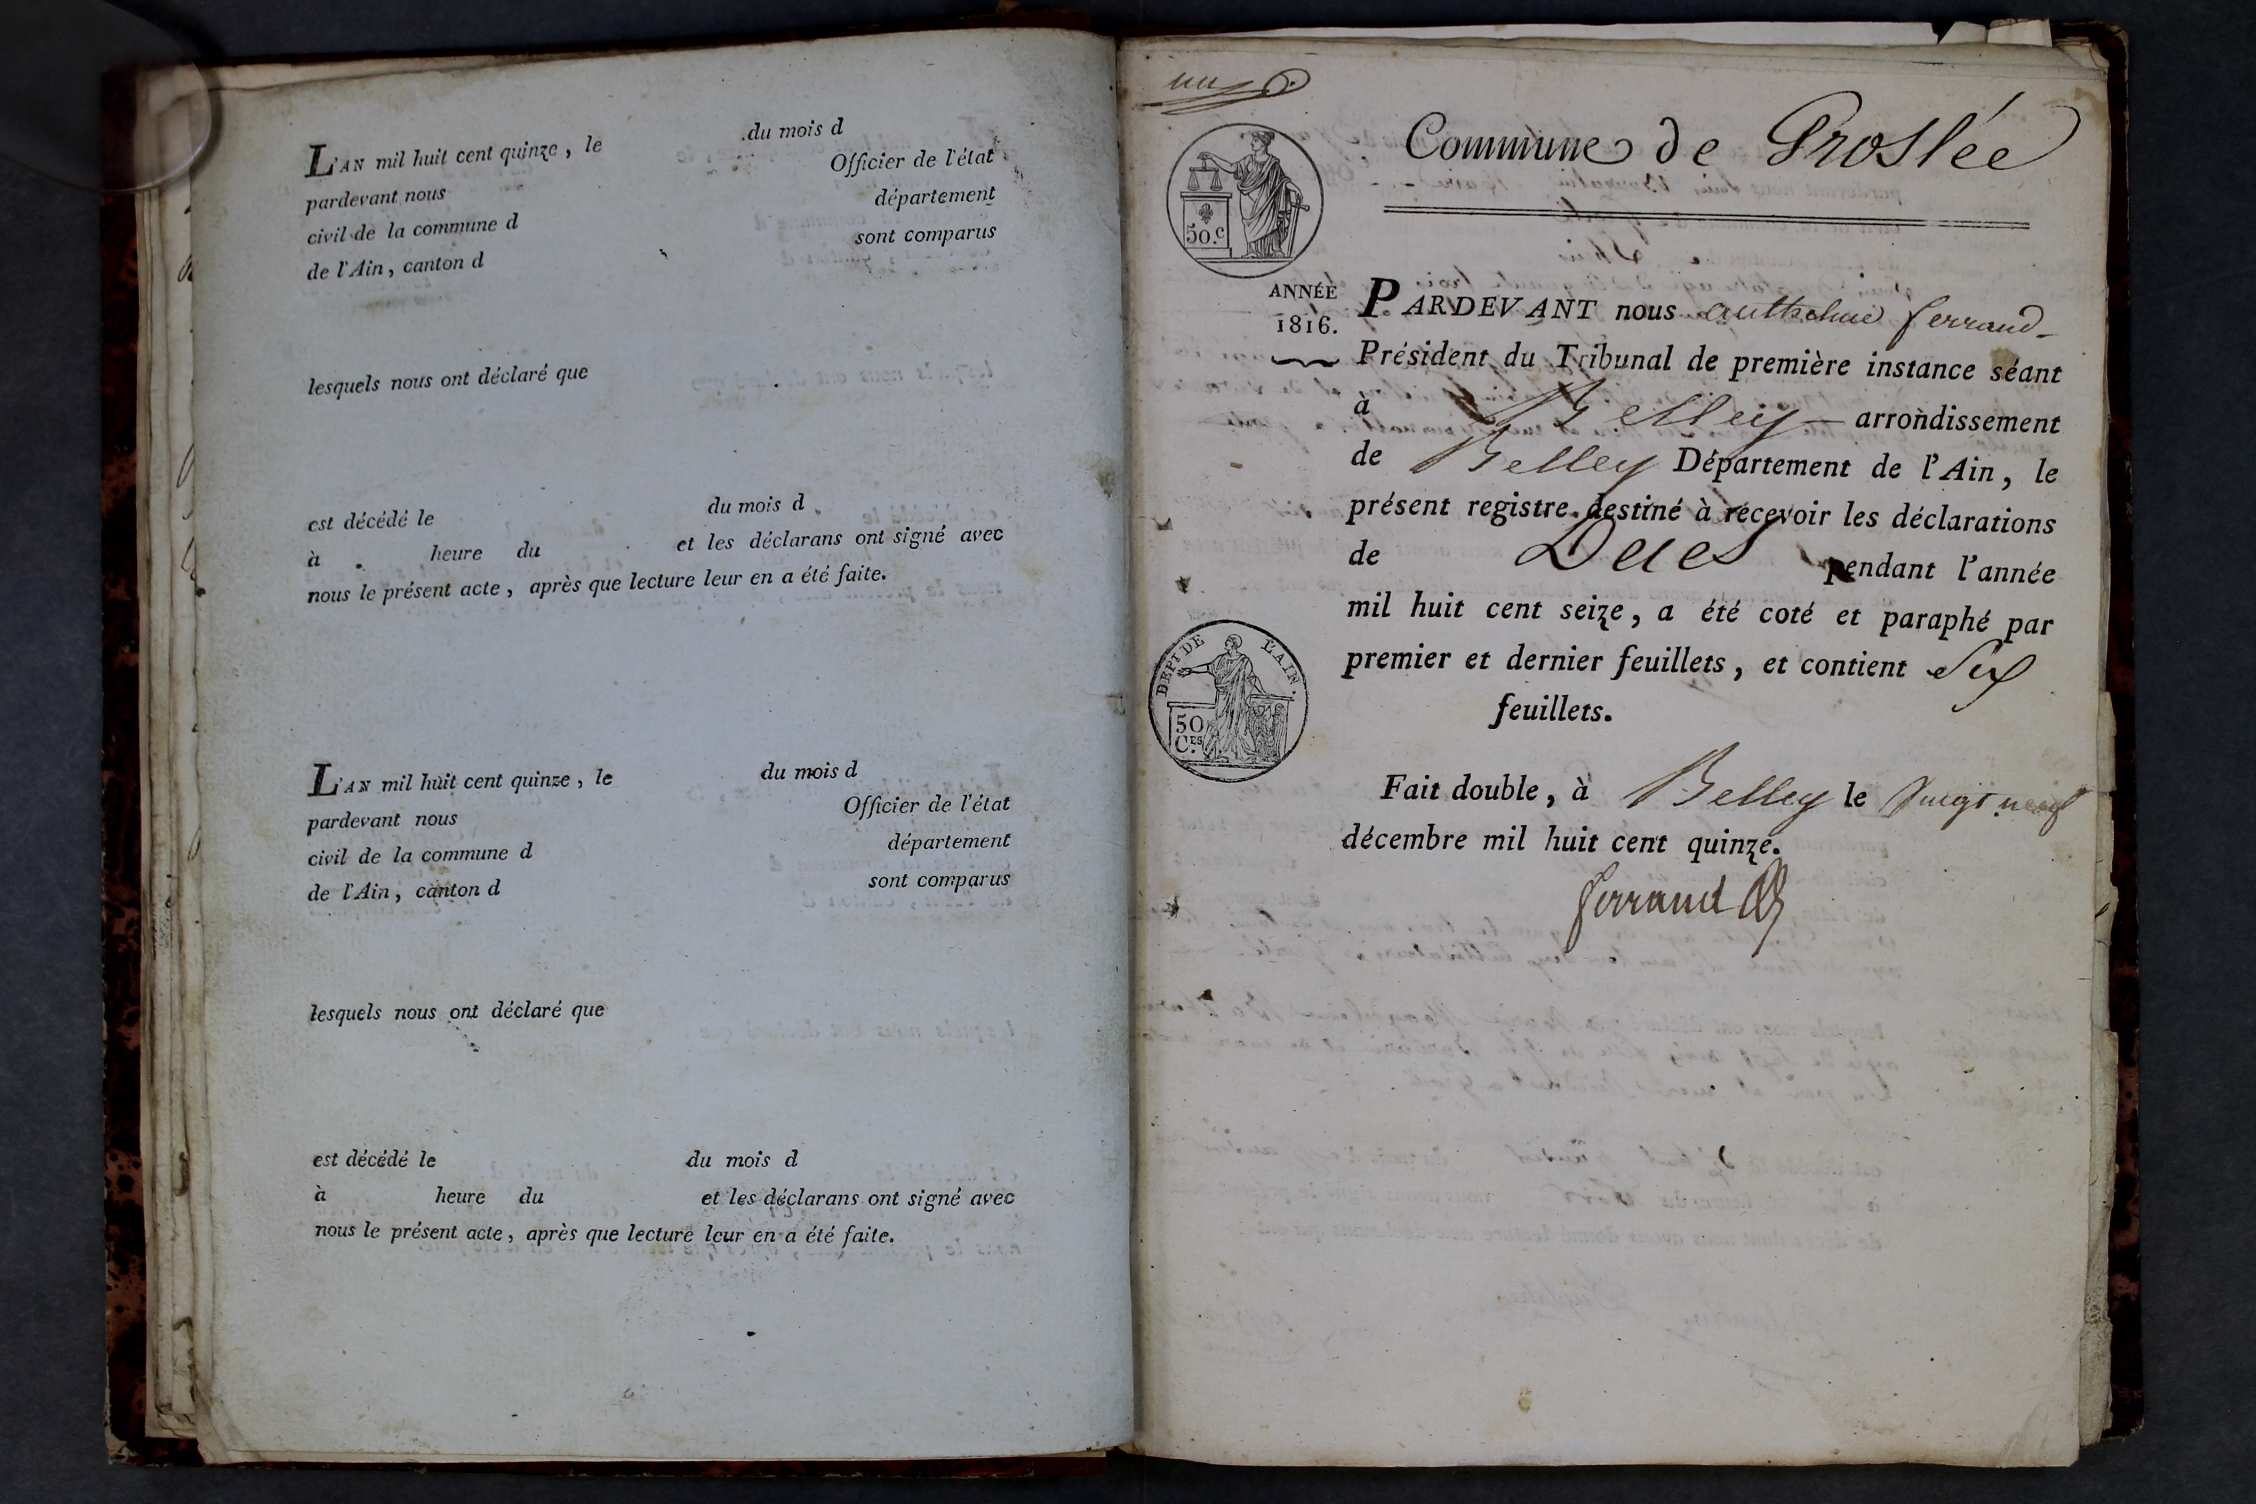 L'AN mil huit cent quinze, le du mois d
pardevant nous Officier de l'état
civil de la commune d département
de l'Ain, canton d sont comparus
lesquels nous ont déclaré que
est décédé le du mois d
à heure du et les déclarans ont signé avec
nous le présent acte, après que lecture leur en a été faite.
L'AN mil huit cent quinze, le du mois d
pardevant nous Officier de l'état
civil de la commune d département
de l'Ain, canton d sont comparus
lesquels nous ont déclaré que
est décédé le du mois d
à heure du et les déclarans ont signé avec
nous le présent acte, après que lecture leur en a été faite.
Commune de Groslée
50.c
ANNÉE
1816.
PARDEVANT nous anthelme ferrand
Président du Tribunal de première instance séant
à Belley arrondissement
de Belley Département de l'Ain, le
présent registre destiné à recevoir les déclarations
de Déces pendant l'année
mil huit cent seize, a été coté et paraphé par
premier et dernier feuillets, et contient Six
feuillets.
DEPT DE L'AIN.
50
CES
Fait double, à Belley le vingt neuf
décembre mil huit cent quinze.
ferrand